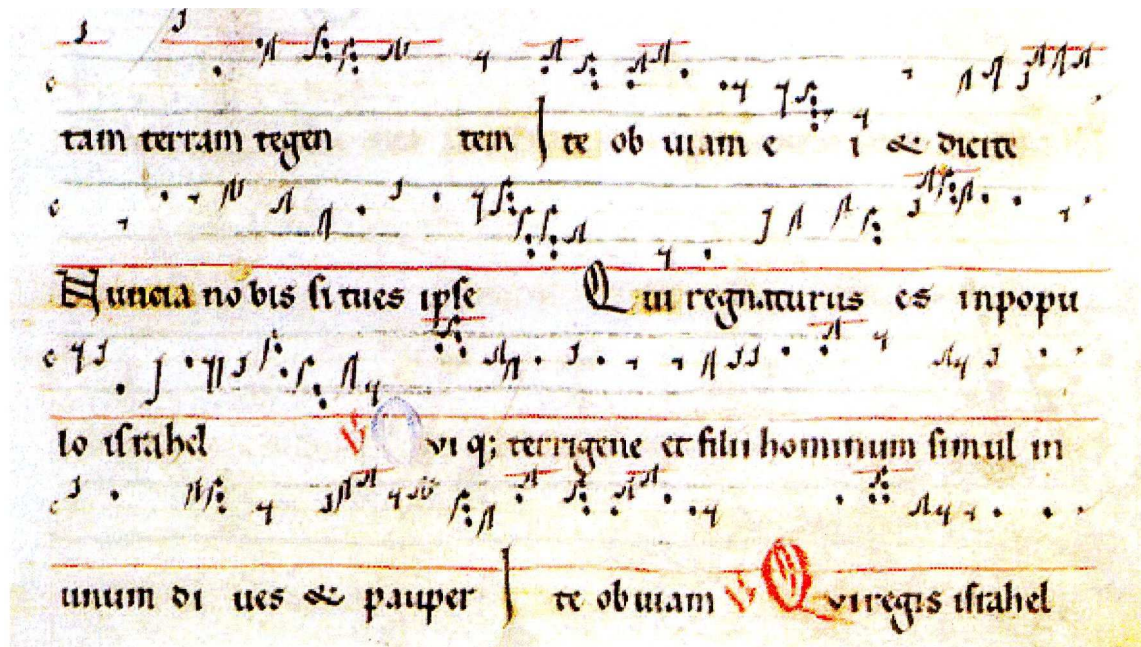 tam terram tegen tem Ite ob uiam e i & dicite
Nuncia no bis si tu es ipse Qui regnaturus es in popu
lo israhel V Qui q; terrigene et filii hominum simul in
unum di ues & pauper Ite ob uiam V Qui regis israhel